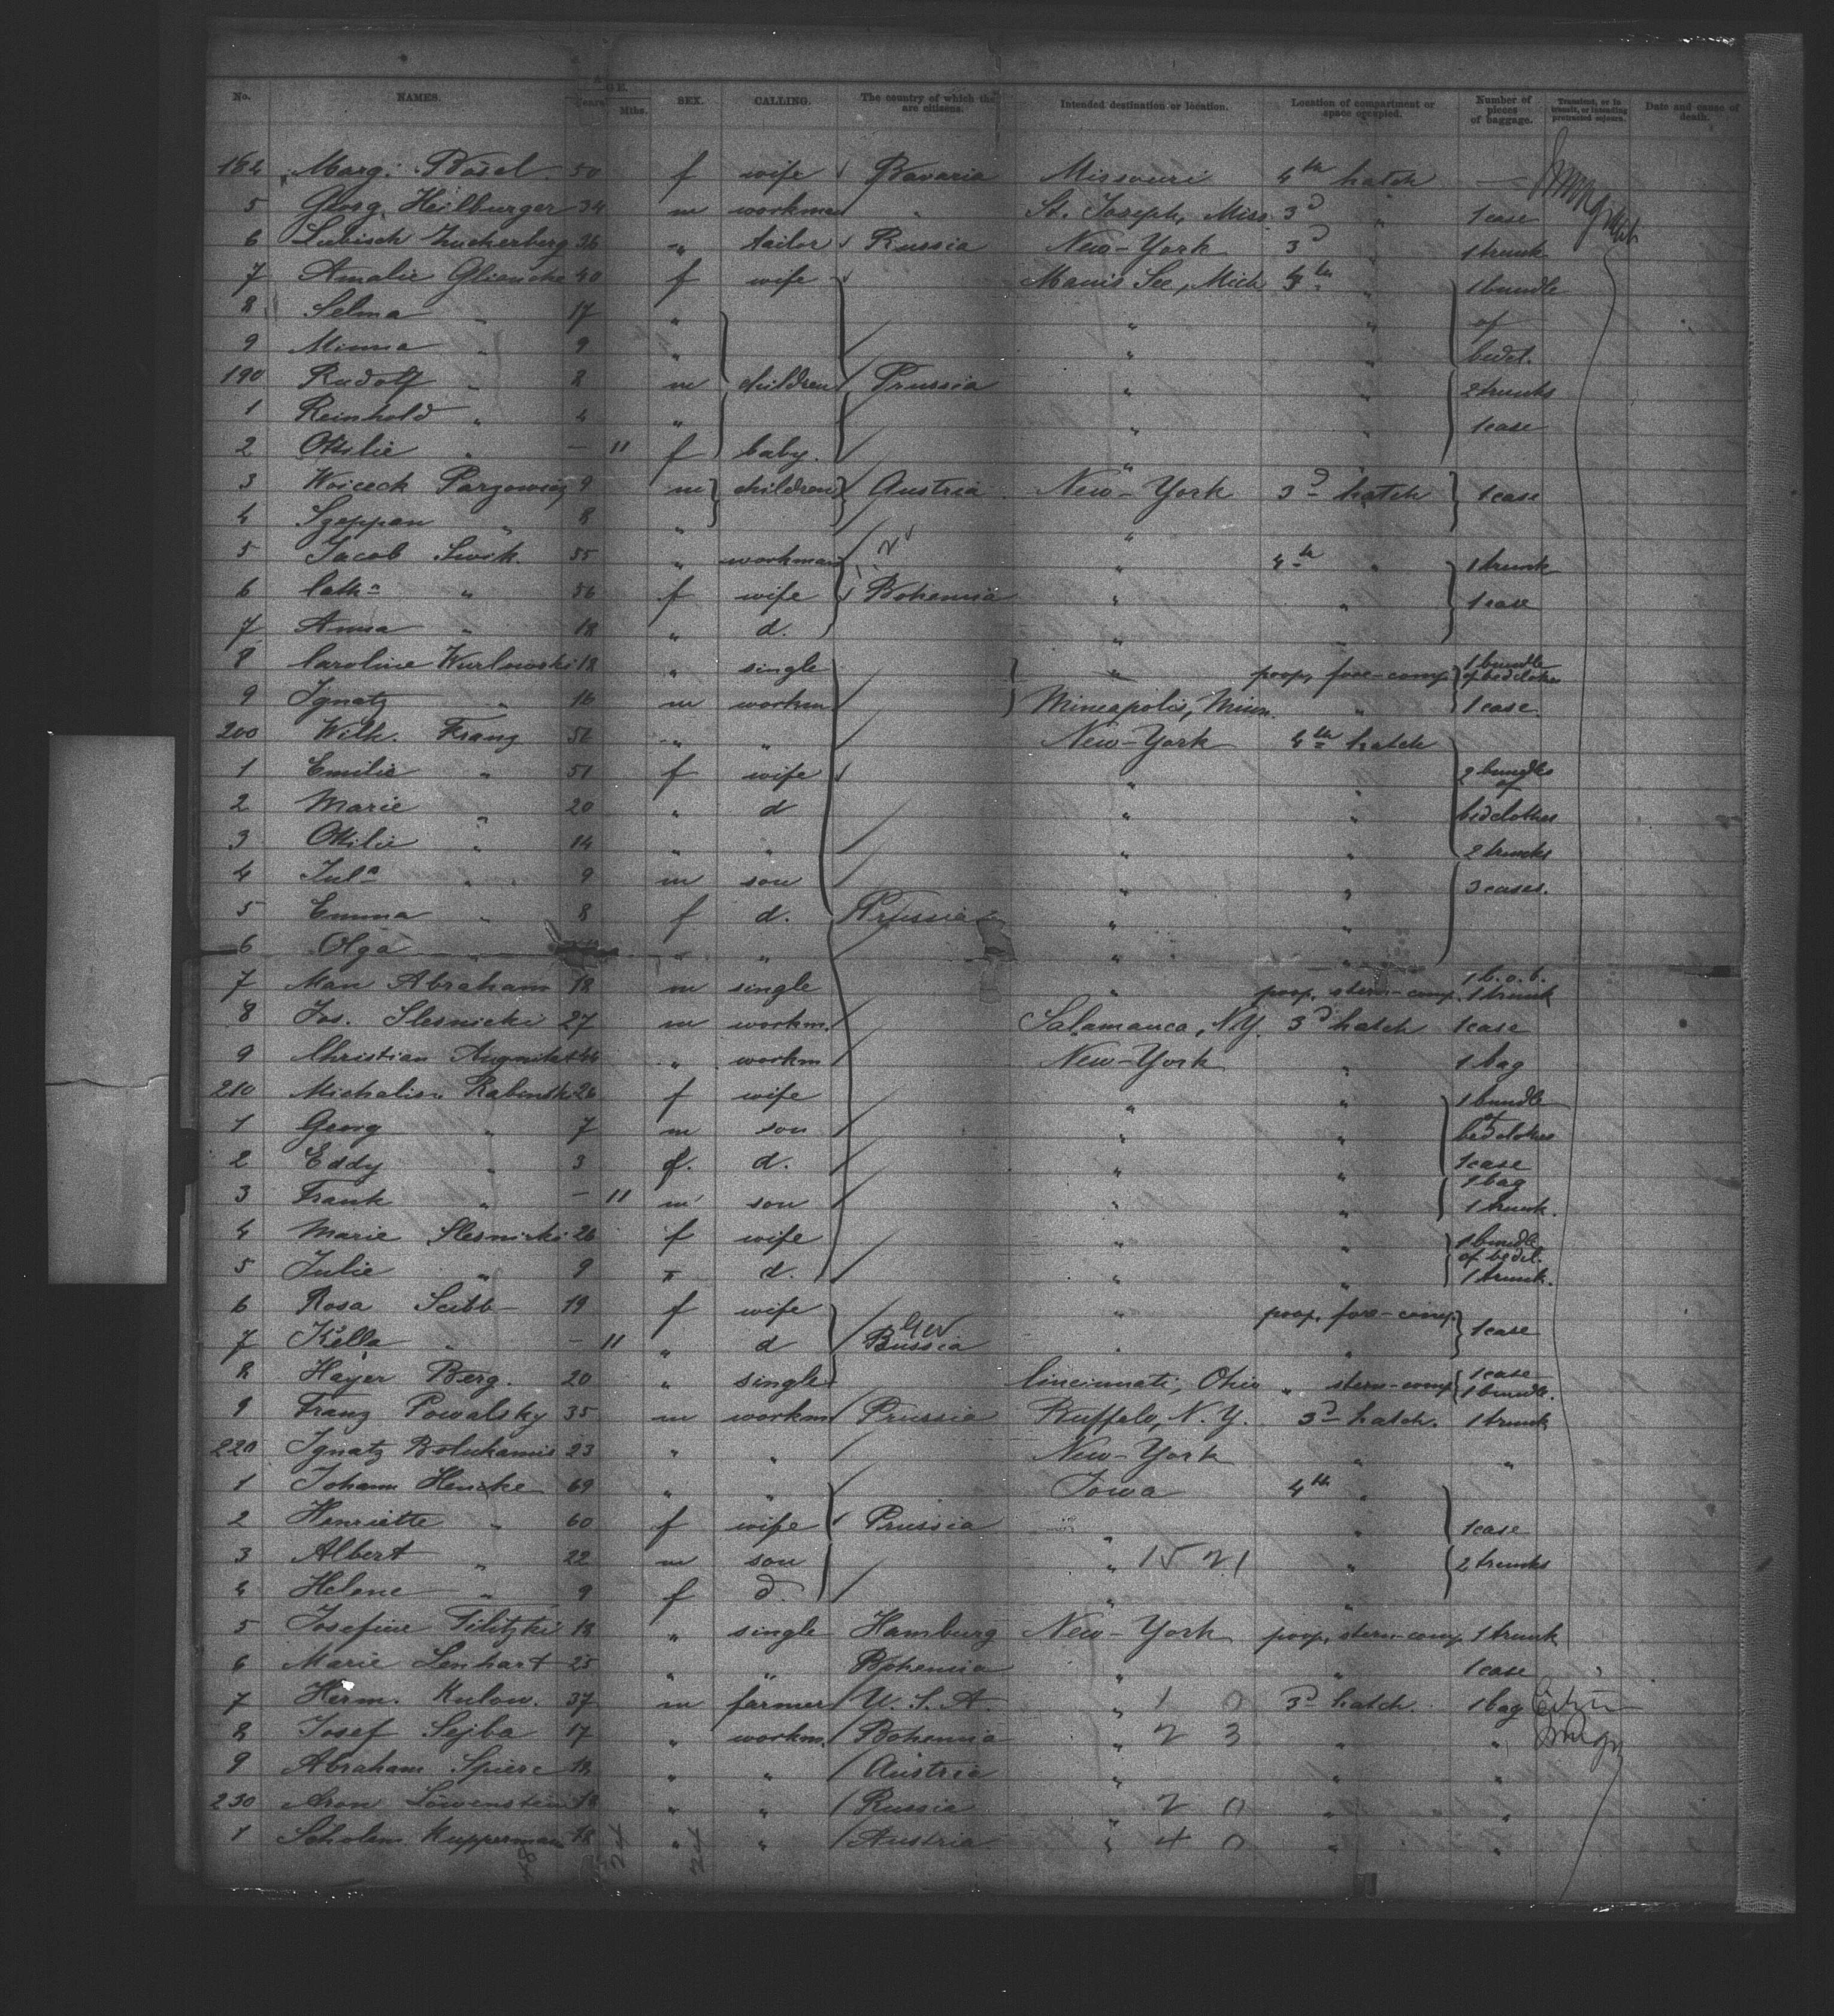 No. NAMES. AGE. Years Mths. SEX. CALLING. The country of which they are citizens. Intended destination or location. Location of compartment or space occupied. Number of pieces of baggage. Transient, or in transit, or intending protracted sojourn. Date and cause of death.
184 Marg. Bösel 50 f wife Bavaria Missouri 4th hatch —
5 Georg Heilburger 34 m workman " St. Joseph, Miss. 3d " 1 case
6 Lubisch Zuckerberg 36 " tailor Russia New-York 3d " 1 trunk
7 Amalie Gliancke 40 f wife Manis See, Mich 4th " 1 bundle
8 Selma " 17 " " " of
9 Minna " 9 " " bedcl.
190 Rudolf " 8 m children Prussia " " 2 trunks
1 Reinhold " 4 " " " 1 case
2 Ottilie " — 11 f baby. "
3 Woiceck Parzowicz 9 m children Austria New-York 3d hatch 1 case
4 Szeppan " 8 " "
5 Jacob Swik. 55 " workman " 4th " 1 trunk
6 Cath. " 56 f wife Bohemia " " 1 case
7 Anna " 18 " d. " "
8 Caroline Kurlowski 18 " single " poop, fore-comp. 1 bundle of bedclothes
9 Ignatz " 16 m workm. Mineapolis, Minn. " 1 case.
200 Wilh. Franz 52 " " New-York 4th hatch
1 Emilie " 51 f wife " " 2 bundles of
2 Marie " 20 " d " " bedclothes
3 Ottilie " 14 " " " " 2 trunks
4 Juls " 9 m son " " 3 cases.
5 Emma " 8 f d. Prussia " "
6 Olga " " " " "
7 Man Abraham 18 m single " poop, stern-comp. 1 b. o. b. 1 trunk
8 Jos. Slesnicki 27 m workm. Salamanca, N.Y. 3d hatch 1 case
9 Christian 44 " workm New-York " 1 bag
210 Michalin Rabinski 26 f wife " " 1 bundle of
1 Georg " 7 m son " " bedclothes
2 Eddy " 3 f. d. " " 1 case
3 Frank " — 11 m son " " 1 bag 1 trunk.
4 Marie Slesnicki 26 f wife " " 1 bundle of bedcl.
5 Julie " 9 d. " " 1 trunk.
6 Rosa Scibb 19 f wife " poop, fore-comp. 1 case
7 Kella " — 11 " d Russia Ger " "
8 Hayer Berg. 20 " single Cincinnati, Ohio " stern-comp. 1 case 1 bundle.
9 Franz Powalsky 35 m workm Prussia Buffalo, N.Y. 3d hatch. 1 trunk
220 Ignatz 23 " " New-York " "
1 Johann Hencke 69 " " Iowa 4th "
2 Henriette " 60 f wife Prussia " " 1 case
3 Albert " 22 m son " 15 21 " 2 trunks
4 Helene " 9 f d. " "
5 Josefine Tilitzki 18 " single Hamburg New-York poop, stern-comp. 1 trunk
6 Marie Lenhart 25 " " Bohemia " " 1 case
7 Herm. Kulow. 37 m farmer U. S. A. " 1 0 3d hatch. 1 bag
8 Josef Sejba 17 " workm. Bohemia " 2 3 " "
9 Abraham Spiere 18 " " Austria " " "
230 Aron Löwenstein 18 " " Russia " 2 0 " "
1 Scholem Kuppermann 18 " " Austria " 4 0 " "